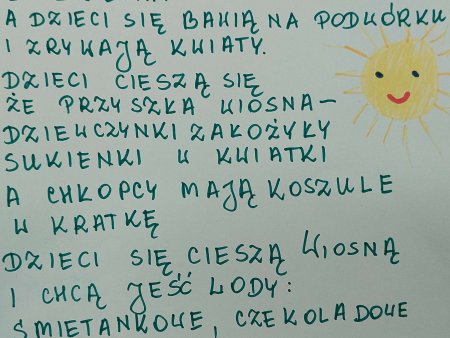 A DZIECI SIĘ BAWIĄ NA PODWÓRKU
I ZRYWAJĄ KWIATY.
DZIECI CIESZĄ SIĘ
ŻE PRZYSZŁA WIOSNA –
DZIEWCZYNKI ZAŁOŻYŁY
SUKIENKI W KWIATKI
A CHŁOPCY MAJĄ KOSZULE
W KRATKĘ
DZIECI SIĘ CIESZĄ WIOSNĄ
I CHCĄ JEŚĆ LODY:
ŚMIETANKOWE, CZEKOLADOWE